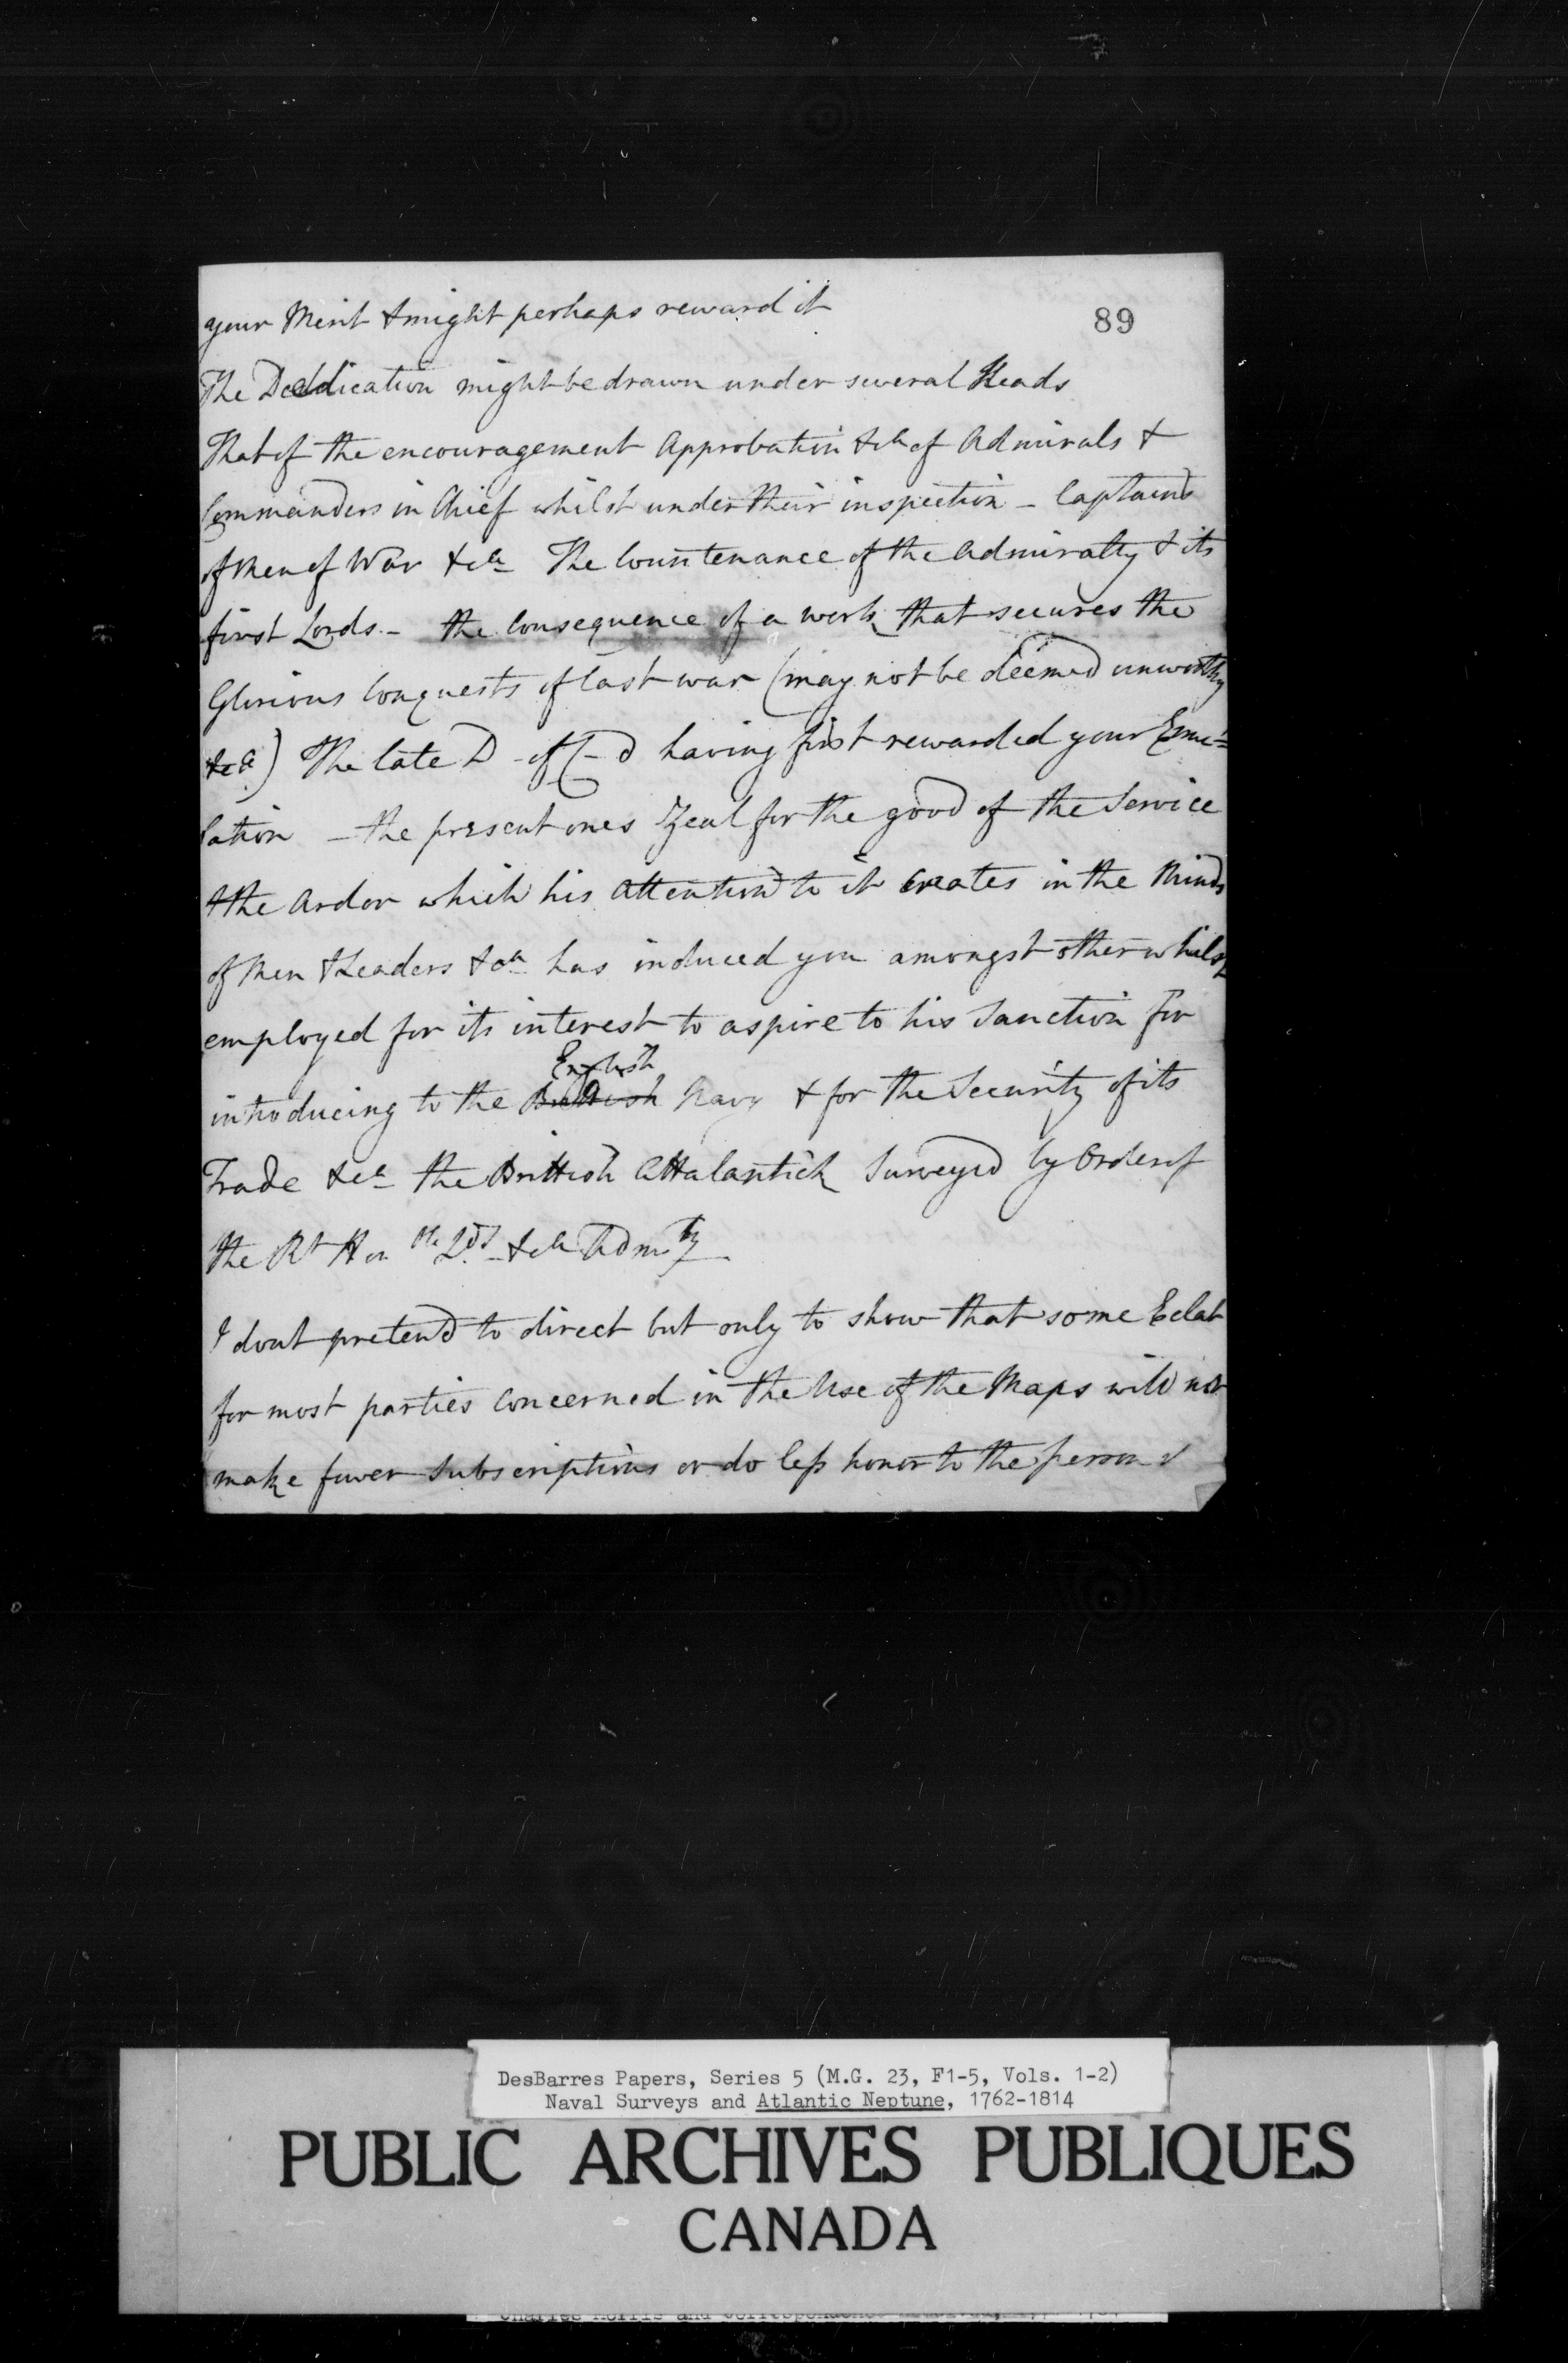 89
your Merit & might perhaps reward it
The Deddication might be drawn under several Heads
That of the encouragement Approbation &ca of Admirals &
Commanders in Chief whilst under their inspection - Captains
of Men of War &ca The Countenance of the Admiralty & its
first Lords - the Consequence of a work that secures the
Glorious Conquests of last war (may not be deemed unworthy
&ca) The late D - of C-d having first rewarded your Emu=
lation - the present ones Zeal for the good of the Service
& the Ardor which his Attention to it Creates in the Minds
of Men & Leaders &ca has induced you amongst other whilst
employed for its interest to aspire to his Sanction for
English
introducing to the Brittish Navy & for the Security of its
Trade &ca the Brittish Attalantick Surveyed by Order of
the Rt Honble Lds &ca Admty
I dont pretend to direct but only to show that some Eclat
for most parties Concerned in the Use of the Maps will not
make fewer Subscriptions or do less honor to the person &
DesBarres Papers, Series 5 (M.G. 23, F1-5, Vols. 1-2)
Naval Surveys and Atlantic Neptune, 1762-1814
PUBLIC ARCHIVES PUBLIQUES
CANADA